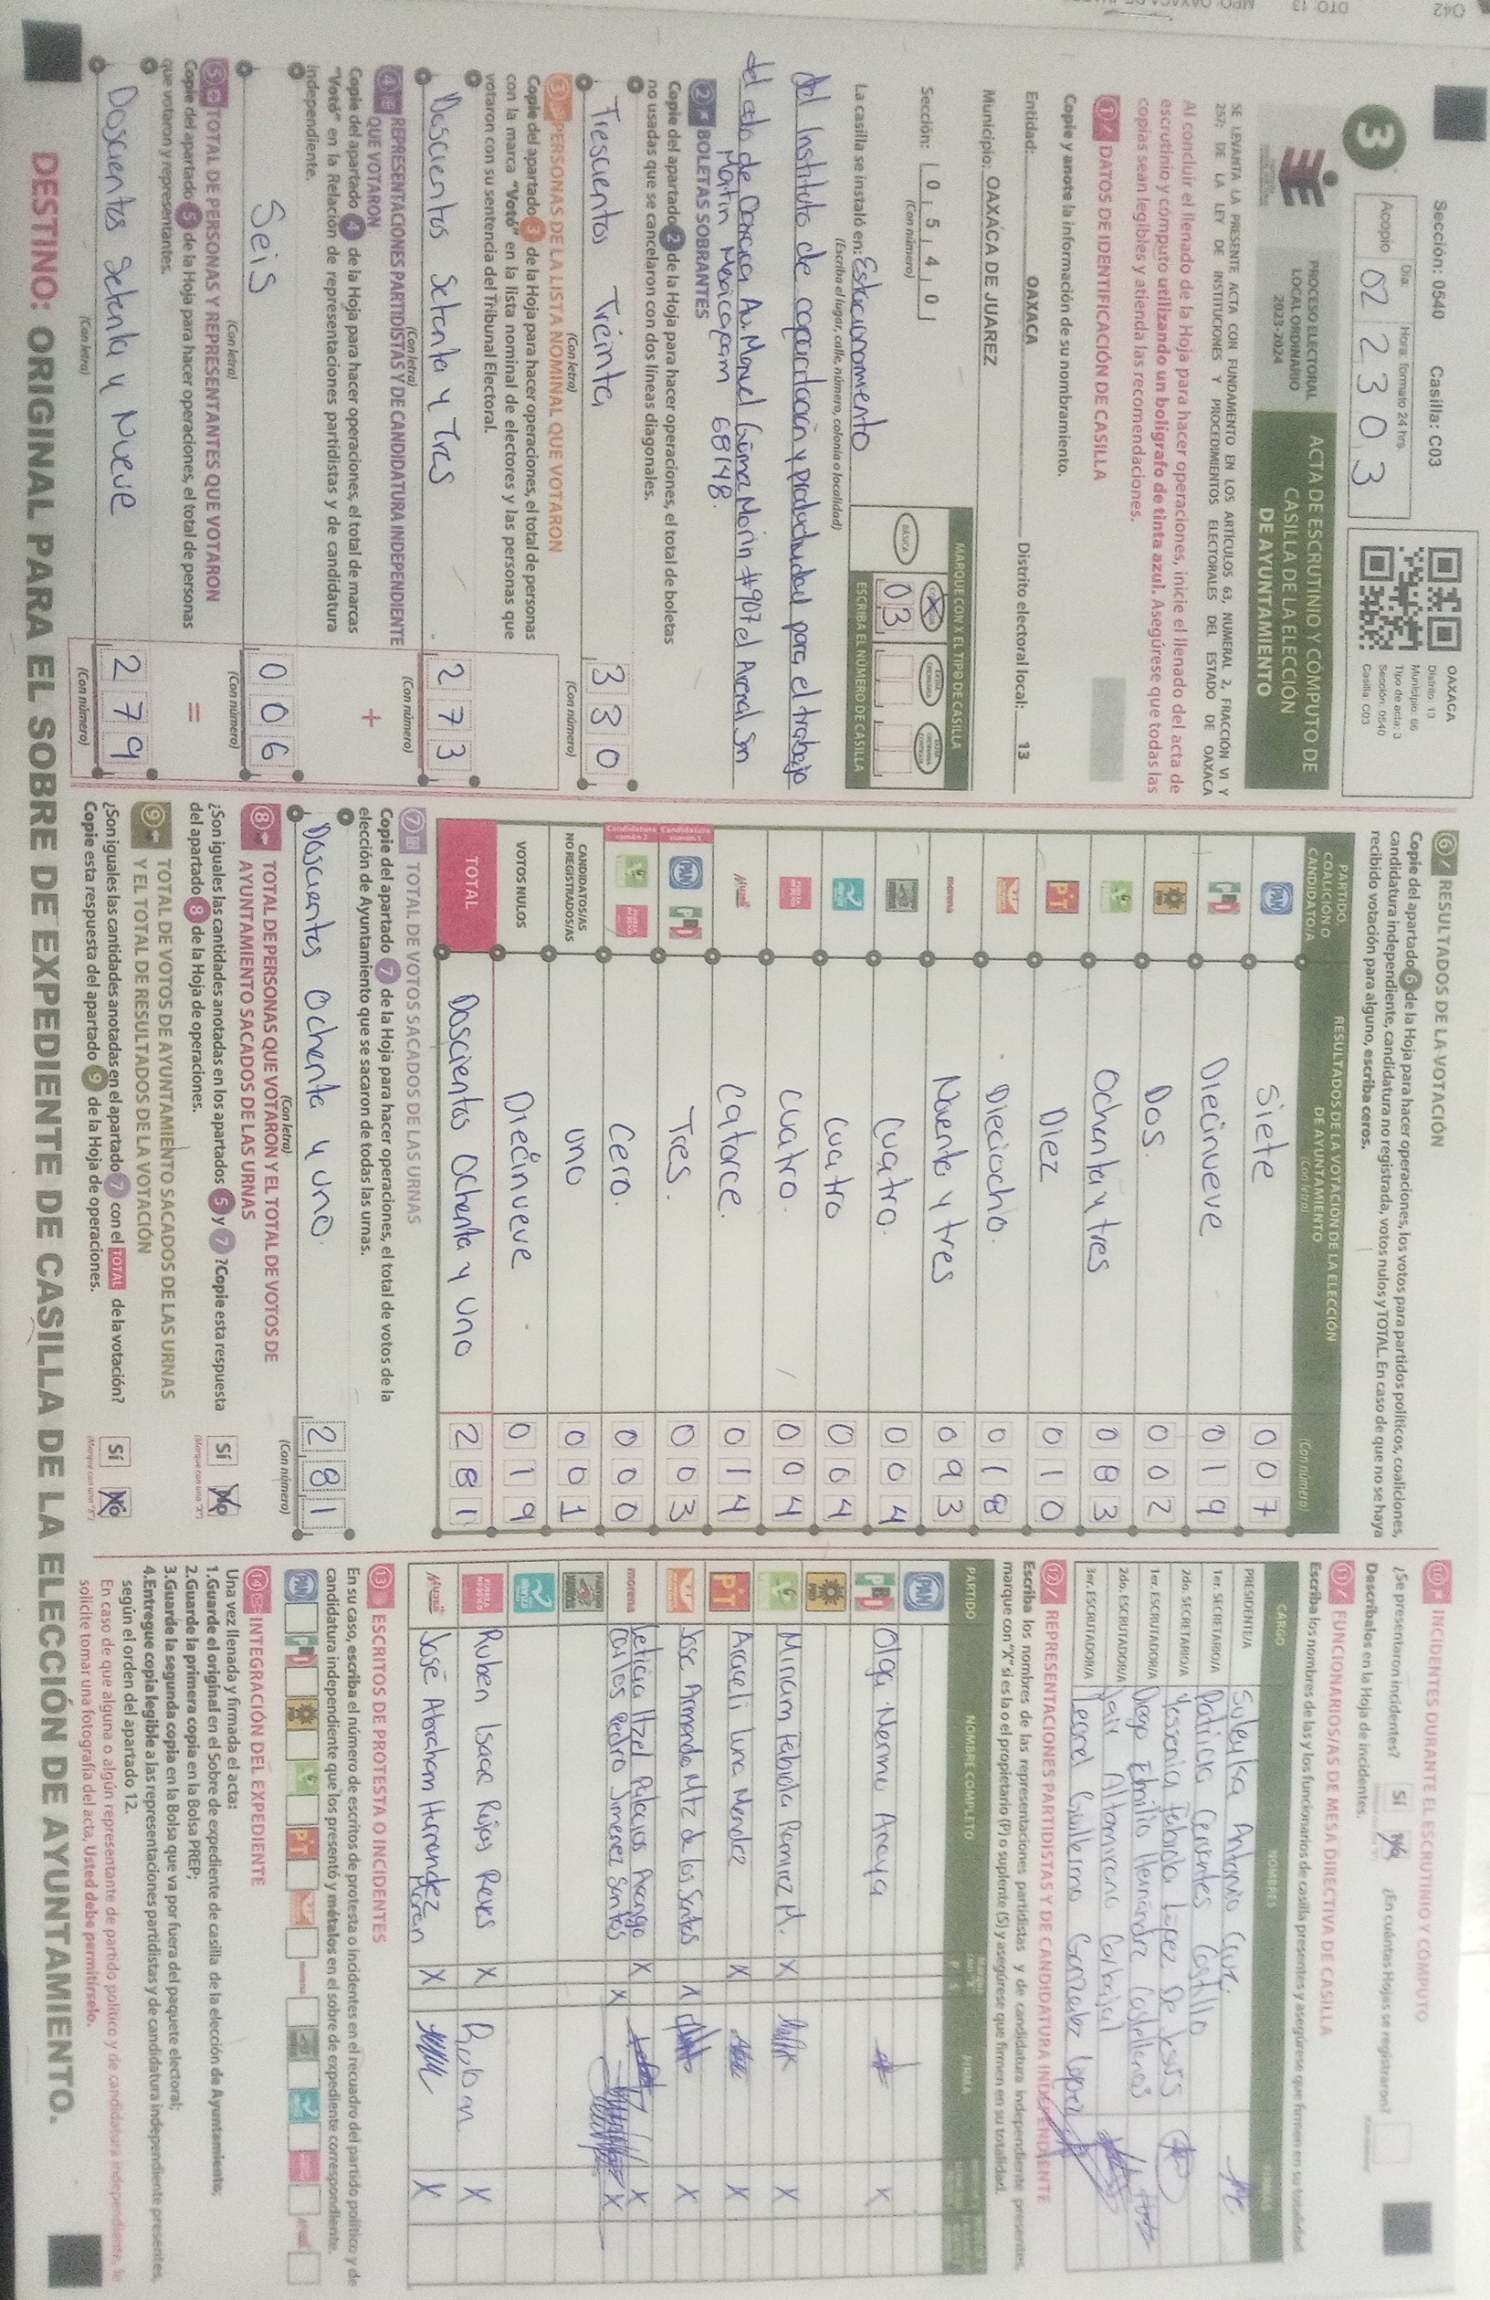 Sección: 0540 Casilla: C03
3
Acopio
Día:
Hora: formato 24 hrs.
02 23 03
OAXACA
Distrito: 13
Municipio: 66
Tipo de acta: 3
Sección: 0540
Casilla: C03
PROCESO ELECTORAL
LOCAL ORDINARIO
2023-2024
ACTA DE ESCRUTINIO Y CÓMPUTO DE
CASILLA DE LA ELECCIÓN
DE AYUNTAMIENTO
SE LEVANTA LA PRESENTE ACTA CON FUNDAMENTO EN LOS ARTÍCULOS 63, NUMERAL 2, FRACCIÓN VI Y
257; DE LA LEY DE INSTITUCIONES Y PROCEDIMIENTOS ELECTORALES DEL ESTADO DE OAXACA
Al concluir el llenado de la Hoja para hacer operaciones, inicie el llenado del acta de
escrutinio y cómputo utilizando un bolígrafo de tinta azul. Asegúrese que todas las
copias sean legibles y atienda las recomendaciones.
1 DATOS DE IDENTIFICACIÓN DE CASILLA
Copie y anote la información de su nombramiento.
Entidad: OAXACA Distrito electoral local: 13
Municipio: OAXACA DE JUAREZ
Sección: 0 5 4 0
(Con número)
MARQUE CON X EL TIPO DE CASILLA
BÁSICA
03
ESCRIBA EL NÚMERO DE CASILLA
La casilla se instaló en: Estacionamiento
(Escriba el lugar, calle, número, colonia o localidad)
del Instituto de capacitación y productividad para el trabajo
del edo de Oaxaca Av. Manuel Gómez Morín #907 el Arenal Sn
Martin Mexicapam 68148.
2 BOLETAS SOBRANTES
Copie del apartado 2 de la Hoja para hacer operaciones, el total de boletas
no usadas que se cancelaron con dos líneas diagonales.
Trescientos Treinta 330
(Con letra) (Con número)
3 PERSONAS DE LA LISTA NOMINAL QUE VOTARON
Copie del apartado 3 de la Hoja para hacer operaciones, el total de personas
con la marca "Votó" en la lista nominal de electores y las personas que
votaron con su sentencia del Tribunal Electoral.
Doscientos Setenta y Tres 273
(Con letra) (Con número)
4 REPRESENTACIONES PARTIDISTAS Y DE CANDIDATURA INDEPENDIENTE
QUE VOTARON
+
Copie del apartado 4 de la Hoja para hacer operaciones, el total de marcas
"Votó" en la Relación de representaciones partidistas y de candidatura
independiente.
Seis 006
(Con letra) (Con número)
5 TOTAL DE PERSONAS Y REPRESENTANTES QUE VOTARON
=
Copie del apartado 5 de la Hoja para hacer operaciones, el total de personas
que votaron y representantes.
Doscientos Setenta y Nueve 279
(Con letra) (Con número)
6 RESULTADOS DE LA VOTACIÓN
Copie del apartado 6 de la Hoja para hacer operaciones, los votos para partidos políticos, coaliciones,
candidatura independiente, candidatura no registrada, votos nulos y TOTAL. En caso de que no se haya
recibido votación para alguno, escriba ceros.
PARTIDO, COALICIÓN O CANDIDATO/A
RESULTADOS DE LA VOTACIÓN DE LA ELECCIÓN DE AYUNTAMIENTO
(Con letra) (Con número)
PAN Siete 007
PRI Diecinueve 019
Dos. 002
Ochenta y tres 083
PT Diez 010
Dieciocho. 018
morena Noventa y tres 093
Cuatro. 004
Cuatro 004
Cuatro. 004
Catorce. 014
Candidatura común 1 PAN PRI Tres. 003
Candidatura común 2 Cero. 000
CANDIDATOS/AS NO REGISTRADOS/AS uno 001
VOTOS NULOS Diecinueve 019
TOTAL Doscientos Ochenta y Uno 281
7 TOTAL DE VOTOS SACADOS DE LAS URNAS
Copie del apartado 7 de la Hoja para hacer operaciones, el total de votos de la
elección de Ayuntamiento que se sacaron de todas las urnas.
Doscientos Ochenta y uno. 281
(Con letra) (Con número)
8 TOTAL DE PERSONAS QUE VOTARON Y EL TOTAL DE VOTOS DE
AYUNTAMIENTO SACADOS DE LAS URNAS
¿Son iguales las cantidades anotadas en los apartados 5 y 7 ? Copie esta respuesta
del apartado 8 de la Hoja de operaciones.
Sí No
(Marque con una "X")
9 TOTAL DE VOTOS DE AYUNTAMIENTO SACADOS DE LAS URNAS
Y EL TOTAL DE RESULTADOS DE LA VOTACIÓN
¿Son iguales las cantidades anotadas en el apartado 7 con el TOTAL de la votación?
Copie esta respuesta del apartado 9 de la Hoja de operaciones.
Sí No
(Marque con una "X")
10 INCIDENTES DURANTE EL ESCRUTINIO Y CÓMPUTO
¿Se presentaron incidentes? Sí No ¿En cuántas Hojas se registraron?
Descríbalos en la Hoja de incidentes.
11 FUNCIONARIOS/AS DE MESA DIRECTIVA DE CASILLA
Escriba los nombres de las y los funcionarios de casilla presentes y asegúrese que firmen en su totalidad.
CARGO NOMBRES FIRMAS
PRESIDENTE/A Suleyka Antonio Cruz.
1er. SECRETARIO/A Patricia Cervantes Castillo
2do. SECRETARIO/A Yessenia Fabiola López De Jesús
1er. ESCRUTADOR/A Diego Emilio Hernández Castellanos
2do. ESCRUTADOR/A Yair Altamirano Carbajal
3er. ESCRUTADOR/A Leonel Guillermo González López
12 REPRESENTACIONES PARTIDISTAS Y DE CANDIDATURA INDEPENDIENTE
Escriba los nombres de las representaciones partidistas y de candidatura independiente presentes,
marque con "X" si es la o el propietario (P) o suplente (S) y asegúrese que firmen en su totalidad.
PARTIDO NOMBRE COMPLETO P S FIRMA
PAN
PRI Olga Norma Araya X
Miriam Fabiola Ramirez M. X X
PT Araceli Luna Mendez X X
Jose Armando Mtz de los Santos X X
morena Leticia Itzel Palacios Arango X X
Carlos Pedro Jimenez Santos X X
Ruben Isaac Rojas Reyes X Ruben X
José Abraham Hernandez Moran X X
13 ESCRITOS DE PROTESTA O INCIDENTES
En su caso, escriba el número de escritos de protesta o incidentes en el recuadro del partido político y de
candidatura independiente que los presentó y métalos en el sobre de expediente correspondiente.
14 INTEGRACIÓN DEL EXPEDIENTE
Una vez llenada y firmada el acta:
1.Guarde el original en el Sobre de expediente de casilla de la elección de Ayuntamiento;
2.Guarde la primera copia en la Bolsa PREP;
3.Guarde la segunda copia en la Bolsa que va por fuera del paquete electoral;
4.Entregue copia legible a las representaciones partidistas y de candidatura independiente presentes,
según el orden del apartado 12.
En caso de que alguna o algún representante de partido político y de candidatura independiente, le
solicite tomar una fotografía del acta, Usted debe permitírselo.
DESTINO: ORIGINAL PARA EL SOBRE DE EXPEDIENTE DE CASILLA DE LA ELECCIÓN DE AYUNTAMIENTO.